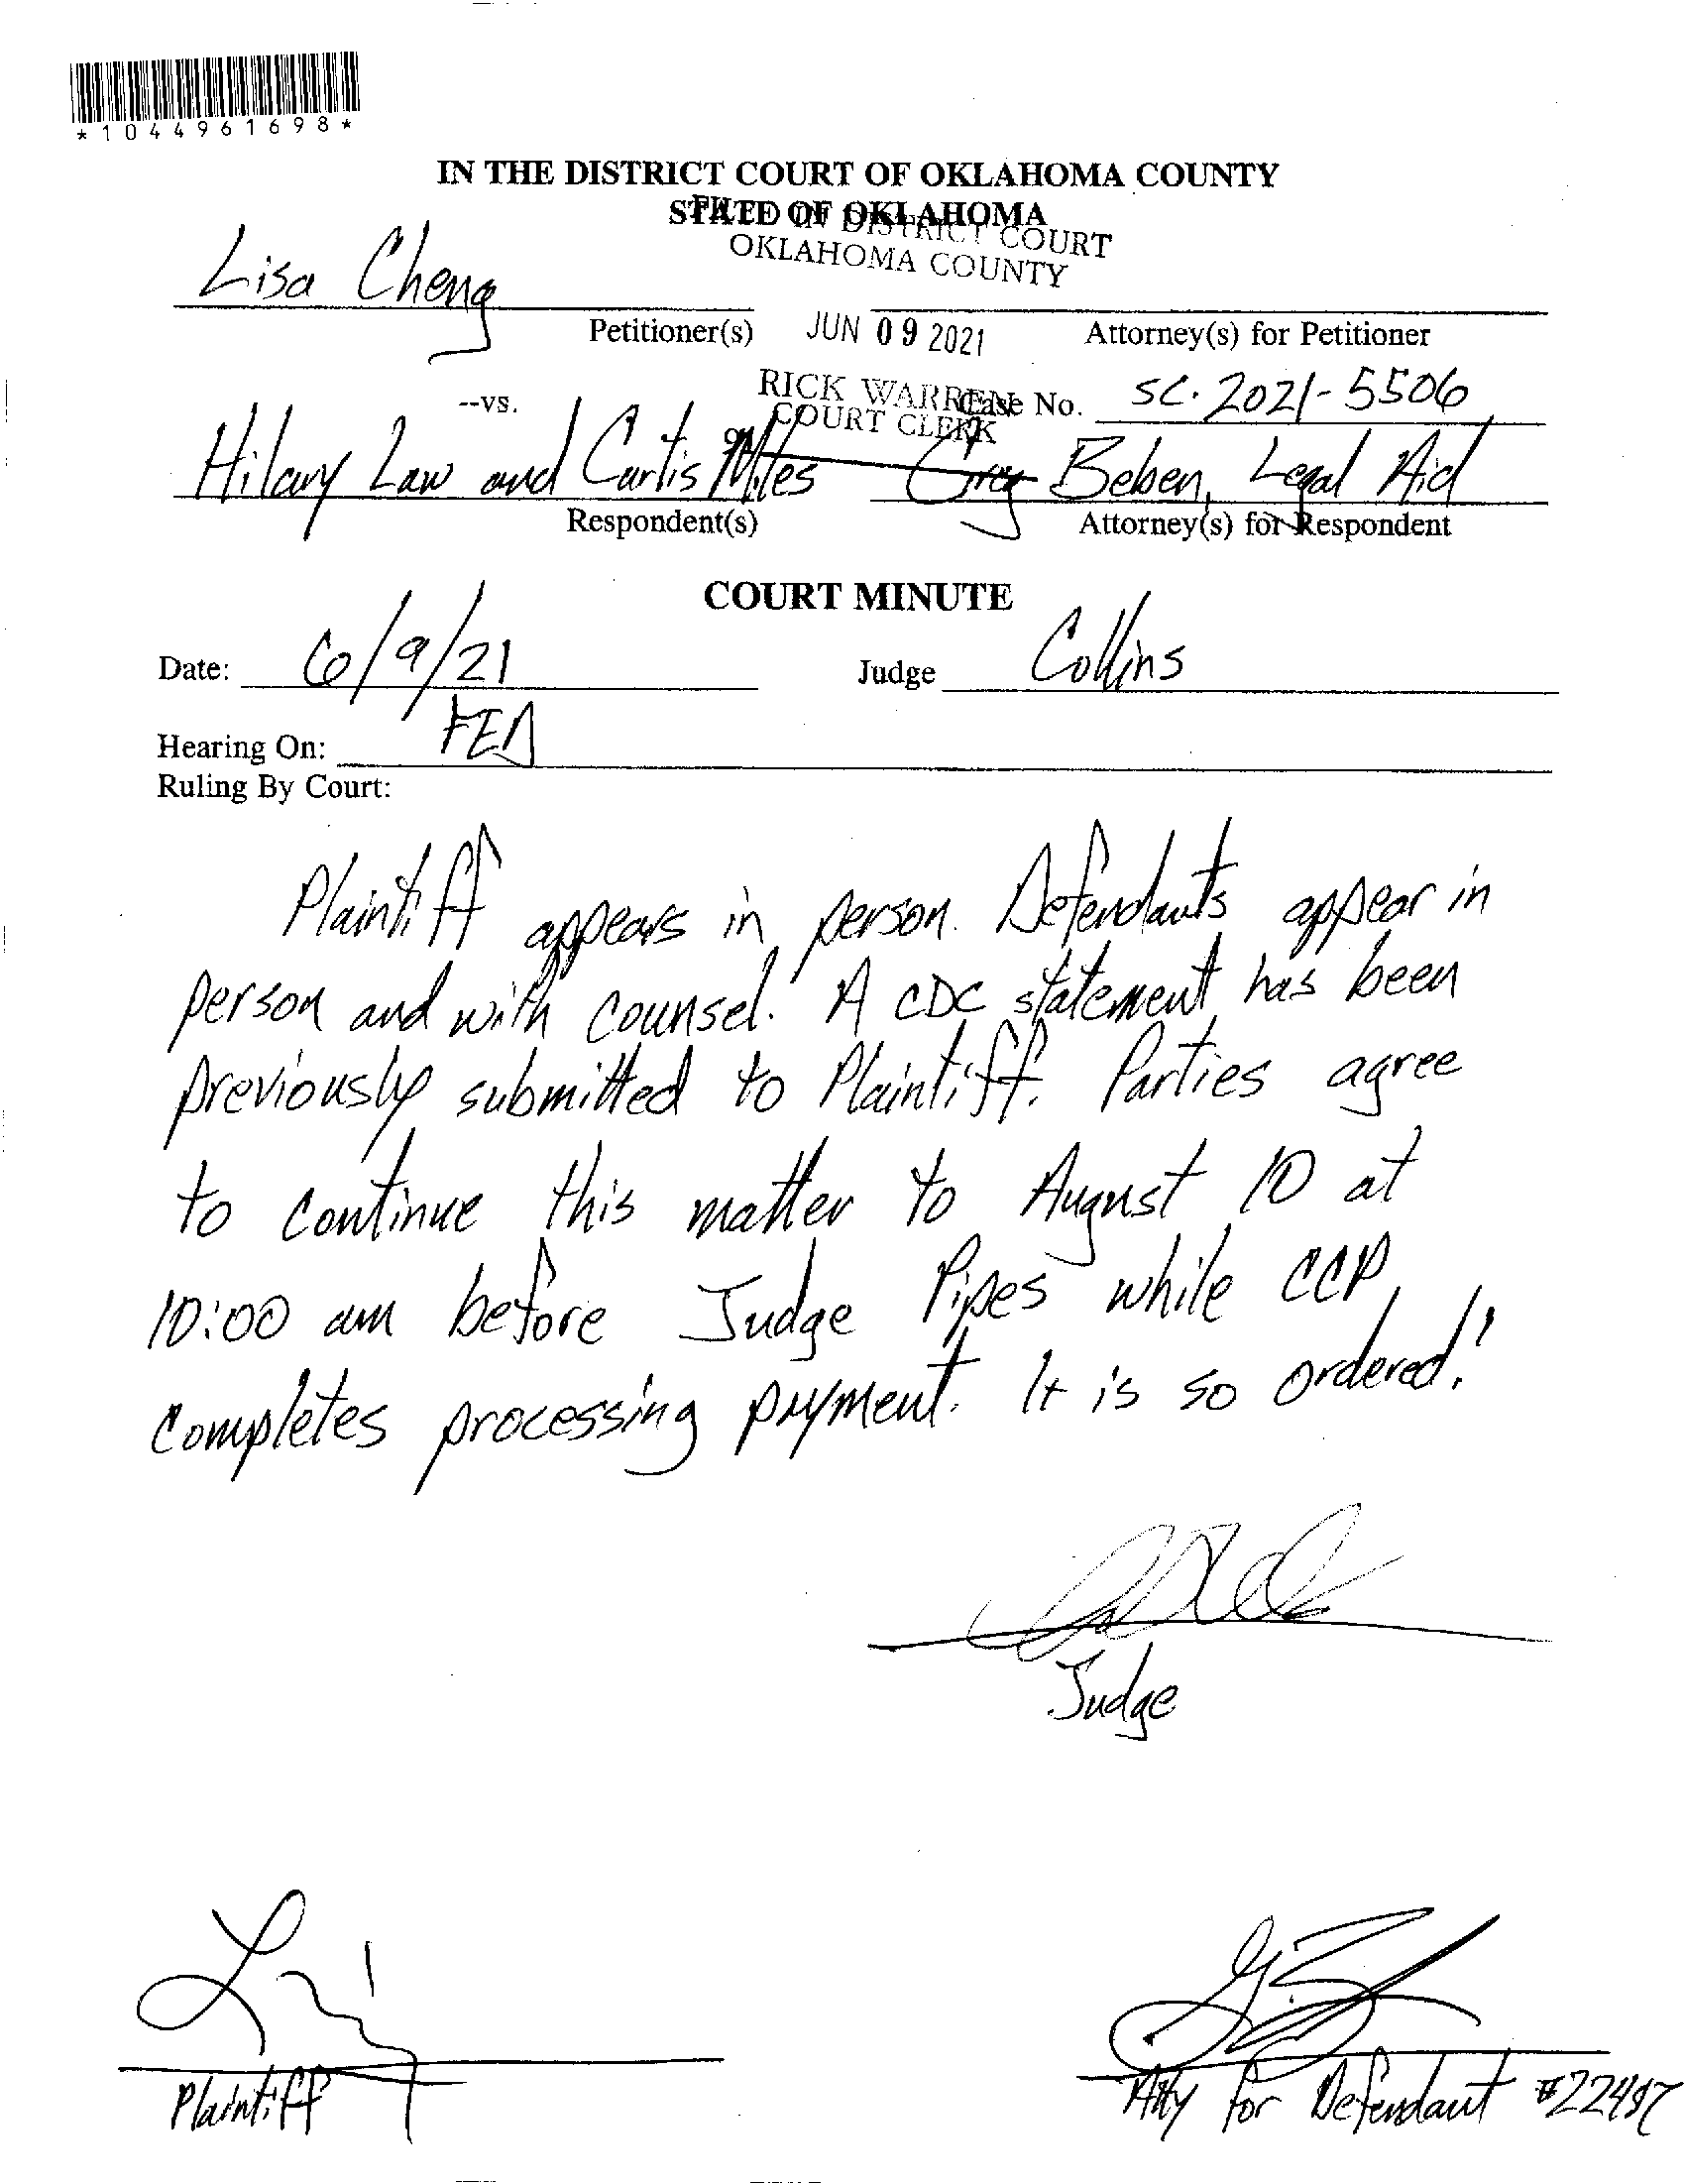 *1044961698*
IN THE DISTRICT COURT OF OKLAHOMA COUNTY
STATE OF OKLAHOMA
FILED IN DISTRICT COURT
OKLAHOMA COUNTY
Lisa Cheng
Petitioner(s)
JUN 09 2021
Attorney(s) for Petitioner
RICK WARREN
COURT CLERK
--vs.
Case No. SC-2021-5506
Hilary Law and Curtis Miles
Greg Beben, Legal Aid
Respondent(s)
Attorney(s) for Respondent
COURT MINUTE
Date: 6/9/21 Judge Collins
Hearing On: FED
Ruling By Court:
Plaintiff appears in person. Defendants appear in
person and with counsel. A CDC statement has been
previously submitted to Plaintiff. Parties agree
to continue this matter to August 10 at
10:00 am before Judge Pipes while CCP
completes processing payment. It is so ordered.
Judge
Plaintiff
Atty for Defendant